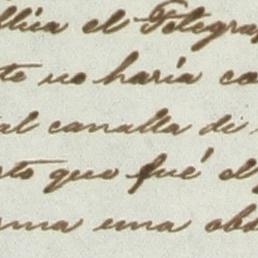 el Telegra
te no haría co
al canalla di
sto que fué el
ma una obs